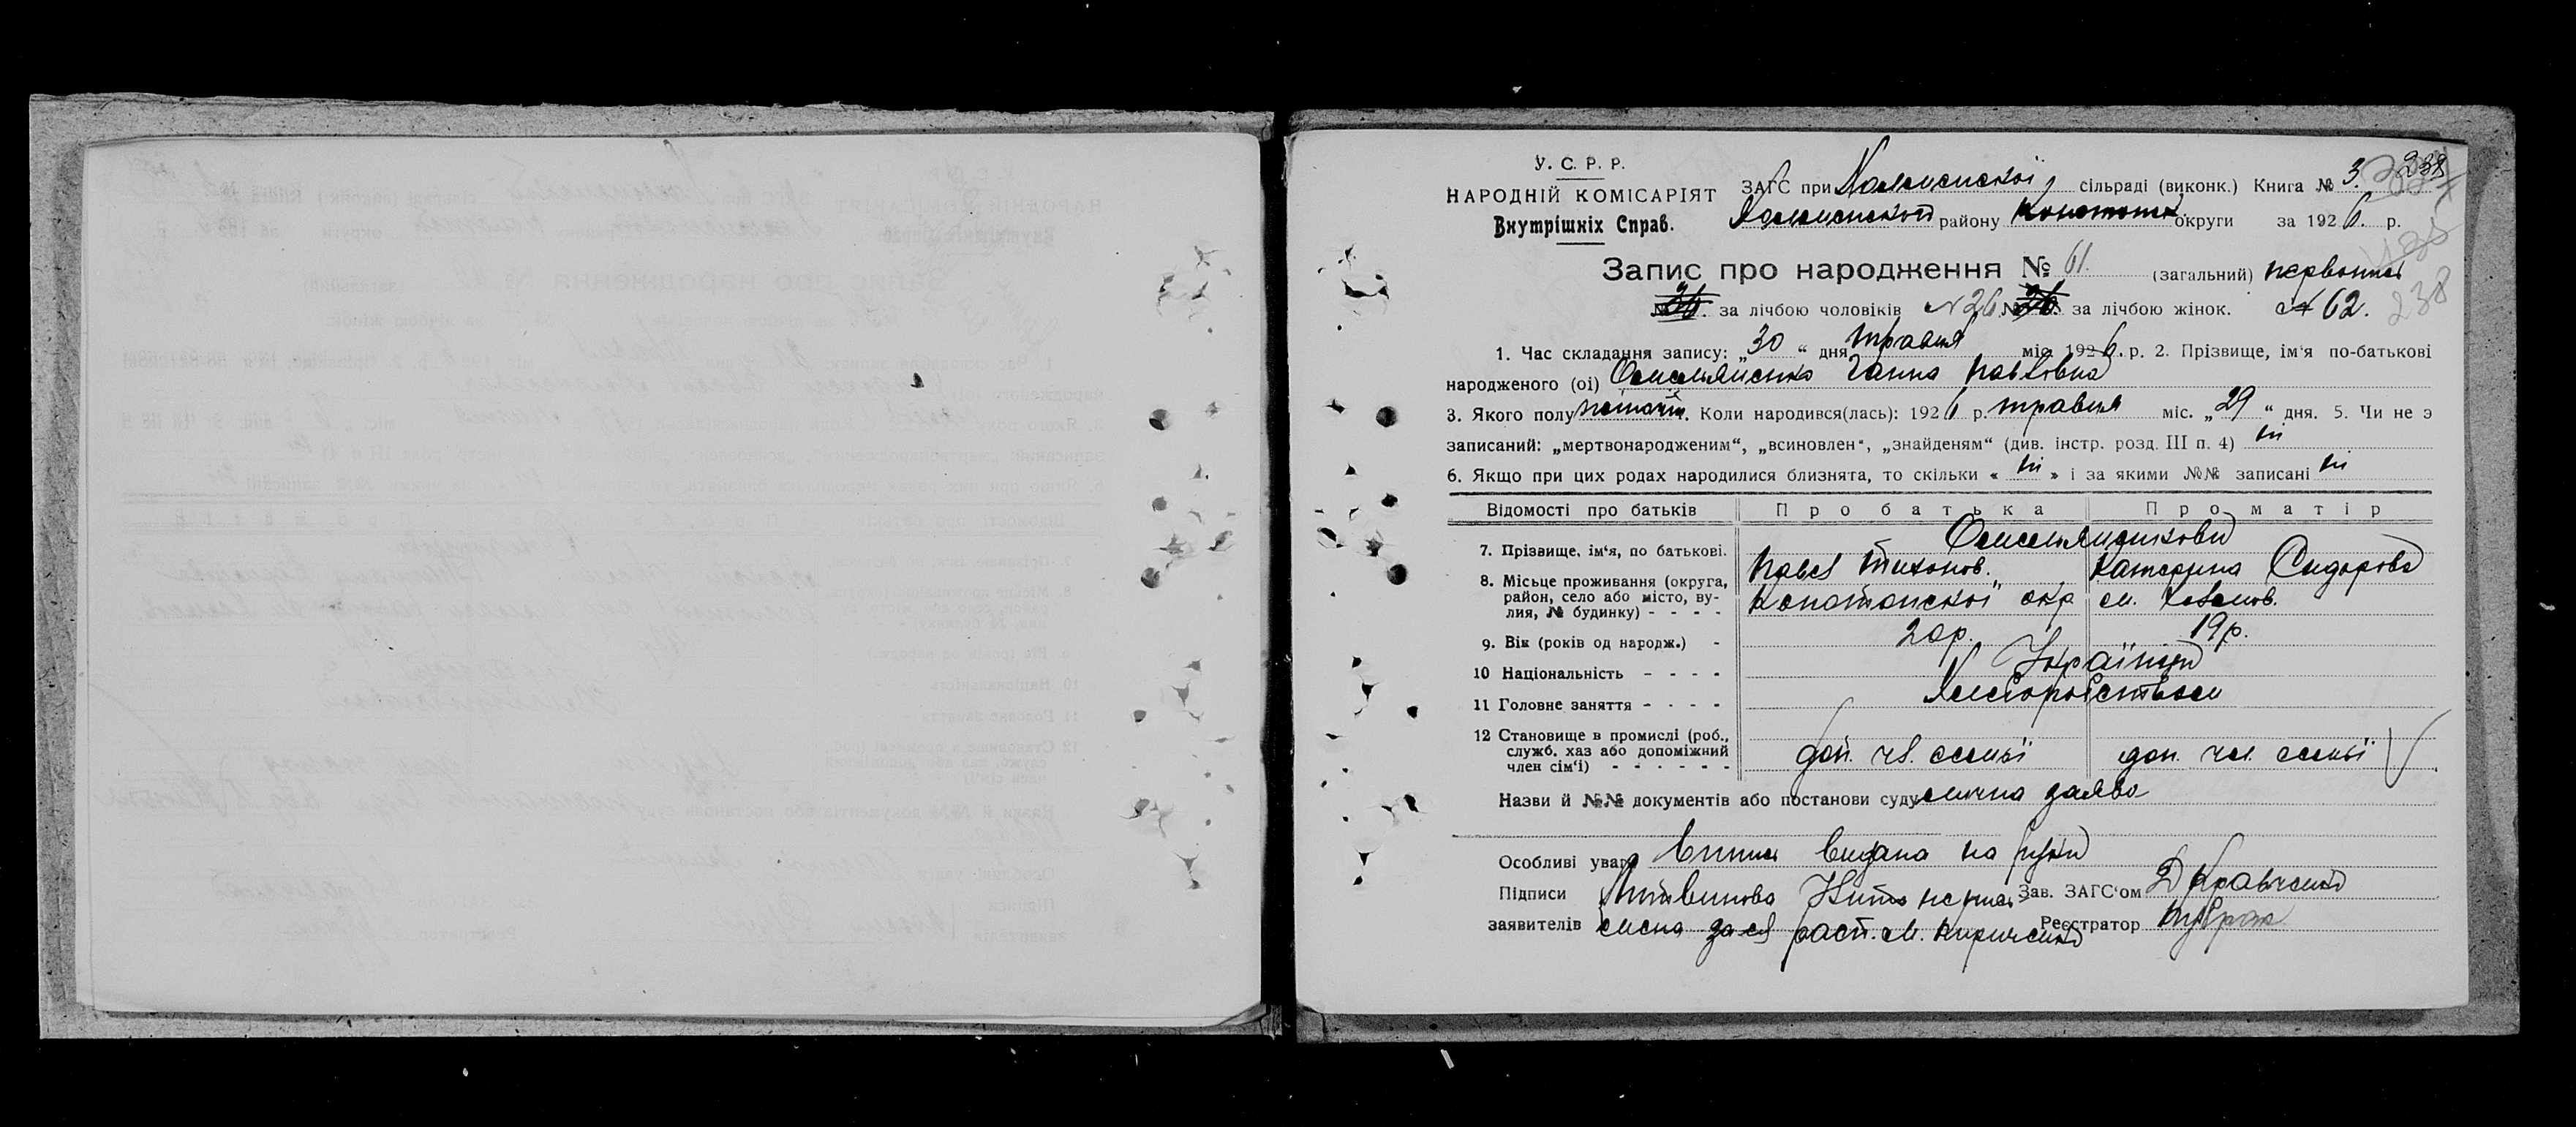 У. С. Р. Р.
НАРОДНІЙ КОМІСАРІЯТ
Внутрішніх Справ.
ЗАГС при Холменської сільраді (виконк.) Книга № 3. 238
району Конотопк. округи за 1926 р.
Запис про народження № 61. (загальний)
за лічбою чоловіків № 26 за лічбою жінок. № 62. 238
1. Час складання запису: „30“ дня травня міс. 1926. р. 2. Прізвище, ім'я по-батькові
народженого (ої) Омельяненко Ганна Павловна
3. Якого полу жіночій. Коли народився(лась): 1926 р. травня міс. „29“ дня. 5. Чи не э
записаний: „мертвонародженим“, „всиновлен“, „знайденям“ (див. інстр. розд. III п. 4) ні
6. Якщо при цих родах народилися близнята, то скільки « ні » і за якими №№ записані ні
Відомості про батьків Про батька Про матір
7. Прізвище, ім'я, по батькові. Омельяненкови
Павел Тихонов. Катерина Сидорова
8. Місьце проживання (округа, район, село або місто, вулия, № будинку) - - - - Конотопської окр м.
9. Вік (років од народж.) - 20р. 19р.
10 Національність - - - - Українци
11 Головне заняття - - - - Хліборобством
12 Становище в промислі (роб., служб. хаз або допоміжний член сім'ї) - - - - - - доп. чл. семьї доп. чл. семьї
Назви й №№ документів або постанови суду лична заява
Особливі уваги Випись видана на руки
Підписи Литвинова Зав. ЗАГС'ом Д Кравченко
заявителів за ея расп. М. Кириченко Реєстратор